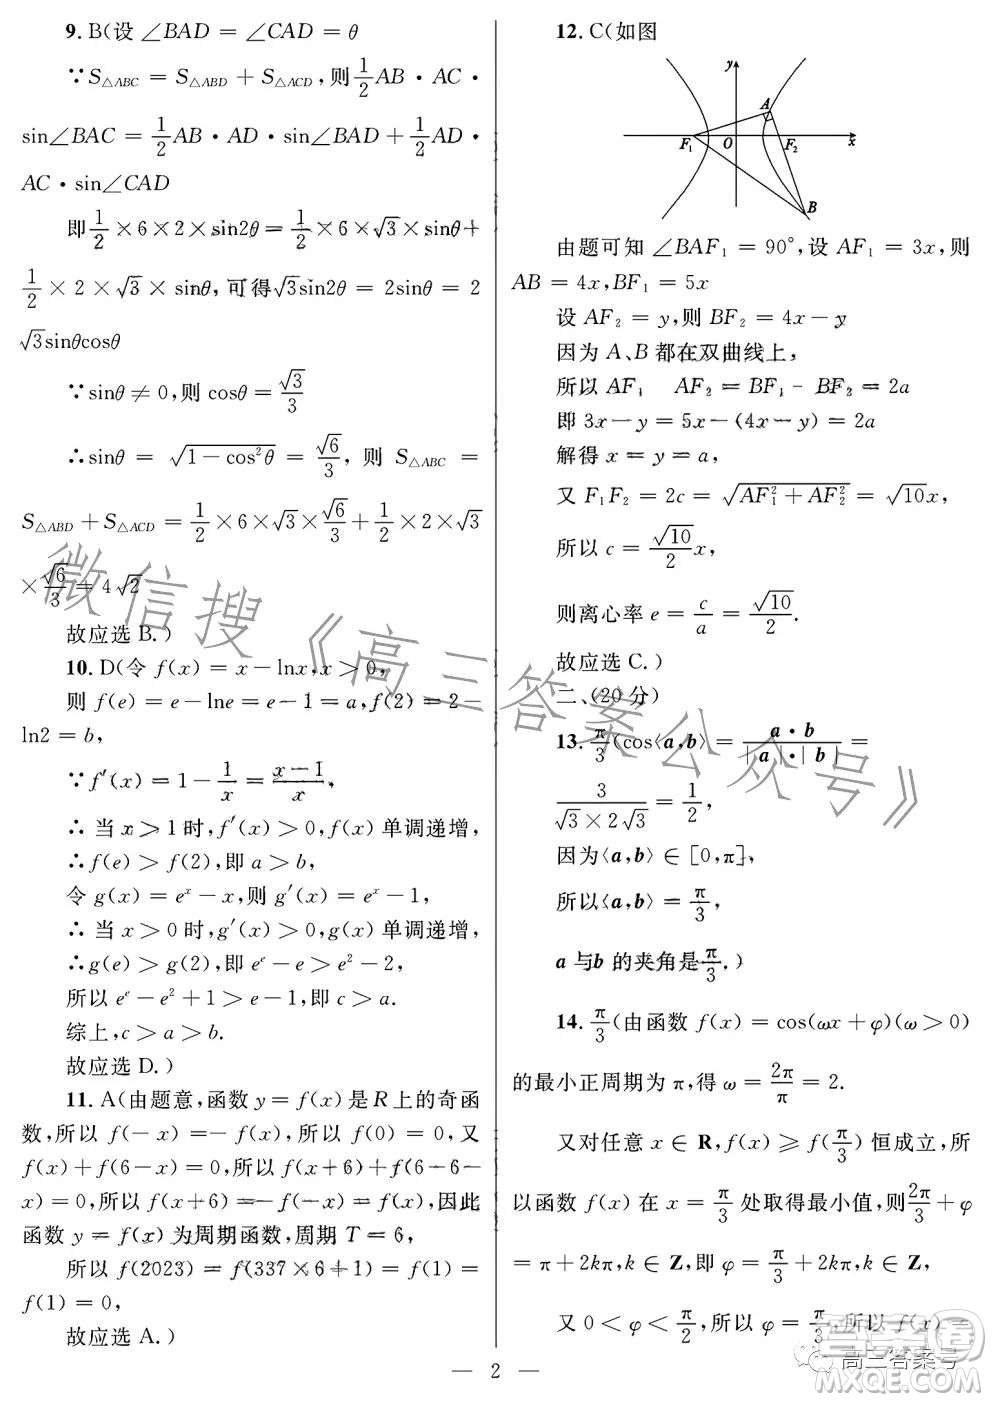 9. B(设 ∠BAD = ∠CAD = θ
∵S△ABC = S△ABD + S△ACD,则 1/2 AB · AC ·
sin∠BAC = 1/2 AB · AD · sin∠BAD + 1/2 AD ·
AC · sin∠CAD
即 1/2 × 6 × 2 × sin2θ = 1/2 × 6 × √3 × sinθ +
1/2 × 2 × √3 × sinθ,可得√3sin2θ = 2sinθ = 2
√3sinθcosθ
∵sinθ ≠ 0,则 cosθ = √3/3
∴sinθ = √(1 − cos²θ) = √6/3, 则 S△ABC =
S△ABD + S△ACD = 1/2 × 6 × √3 × √6/3 + 1/2 × 2 × √3
× √6/3 = 4√2
故应选 B.)
10. D(令 f(x) = x − lnx,x > 0,
则 f(e) = e − lne = e − 1 = a,f(2) = 2 −
ln2 = b,
∵f′(x) = 1 − 1/x = (x − 1)/x,
∴ 当 x > 1 时,f′(x) > 0,f(x) 单调递增,
∴f(e) > f(2),即 a > b,
令 g(x) = eˣ − x,则 g′(x) = eˣ − 1,
∴ 当 x > 0 时,g′(x) > 0,g(x) 单调递增,
∴g(e) > g(2),即 eᵉ − e > e² − 2,
所以 eᵉ − e² + 1 > e − 1,即 c > a.
综上,c > a > b.
故应选 D.)
11. A(由题意,函数 y = f(x) 是 R 上的奇函
数,所以 f(− x) =− f(x),所以 f(0) = 0,又
f(x) + f(6 − x) = 0,所以 f(x + 6) + f(6 − 6 −
x) = 0,所以 f(x + 6) =− f(− x) = f(x),因此
函数 y = f(x) 为周期函数,周期 T = 6,
所以 f(2023) = f(337 × 6 + 1) = f(1) =
f(1) = 0,
故应选 A.)
12. C(如图
y
A
F₁ O F₂ x
B
由题可知 ∠BAF₁ = 90°,设 AF₁ = 3x,则
AB = 4x,BF₁ = 5x
设 AF₂ = y,则 BF₂ = 4x − y
因为 A、B 都在双曲线上,
所以 AF₁ AF₂ = BF₁ − BF₂ = 2a
即 3x − y = 5x − (4x − y) = 2a
解得 x = y = a,
又 F₁F₂ = 2c = √(AF₁² + AF₂²) = √10x,
所以 c = √10/2 x,
则离心率 e = c/a = √10/2.
故应选 C.)
二、(20 分)
13. π/3 (cos⟨a,b⟩ = a · b/(| a | · | b |) =
3/(√3 × 2√3) = 1/2,
因为⟨a,b⟩ ∈ [0,π],
所以⟨a,b⟩ = π/3,
a 与 b 的夹角是 π/3.)
14. π/3 (由函数 f(x) = cos(ωx + φ)(ω > 0)
的最小正周期为 π,得 ω = 2π/π = 2.
又对任意 x ∈ R,f(x) ⩾ f(π/3) 恒成立,所
以函数 f(x) 在 x = π/3 处取得最小值,则 2π/3 + φ
= π + 2kπ,k ∈ Z,即 φ = π/3 + 2kπ,k ∈ Z,
又 0 < φ < π/2,所以 φ = π/3,所以 f(x) =
— 2 —
微信搜《高三答案公众号》
高三答案号